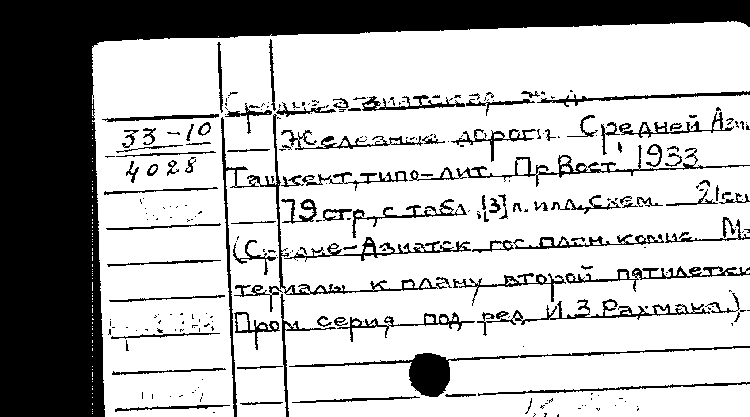 Средне-азиатская ж.д.
33-10
4028
Железные дороги Средней Ази
Ташкент, типо-лит. "Пр.Вост", 1933
79 стр., с табл., [3] л. илл., схем. 21 см
(Средне-Азиатск. гос. план. комис. Ма
териалы к плану второй пятилетки
Пром. серия под ред И.З.Рахмана.)